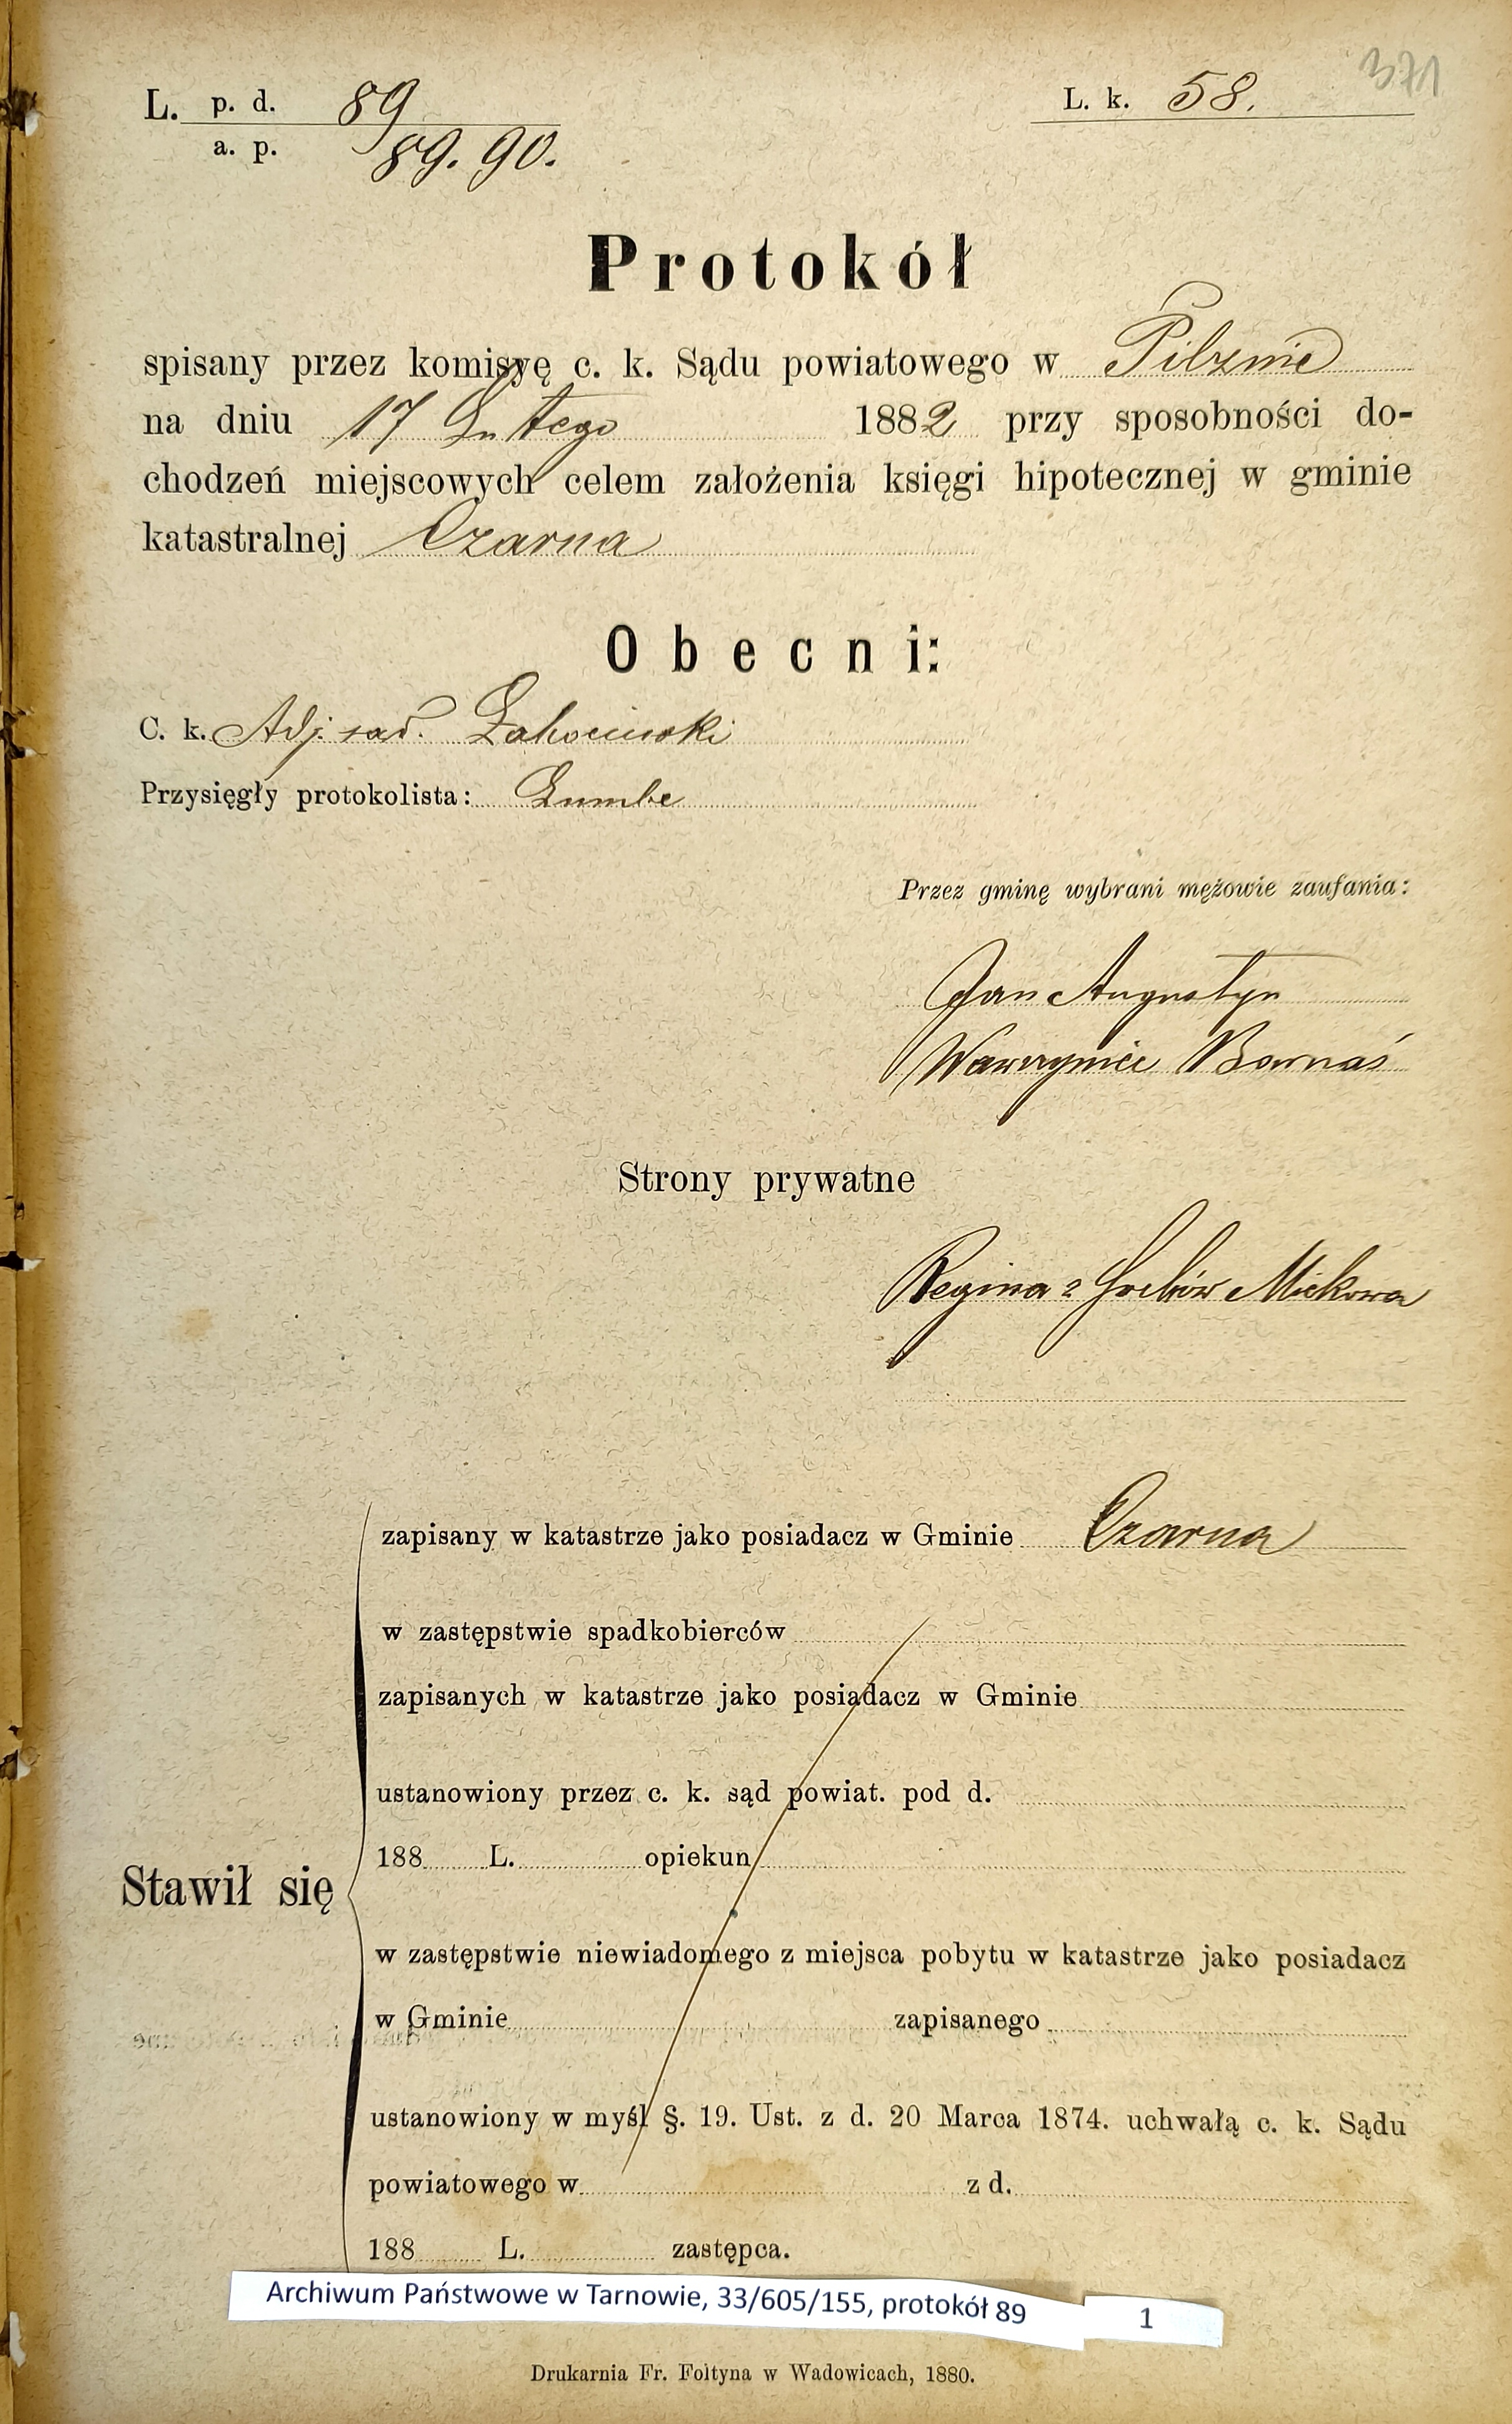 371
L. p. d. 89
a. p. 89. 90.
L. k. 58.
Protokół
spisany przez komisyę c. k. Sądu powiatowego w Pilznie
na dniu 17 Lutego 1882 przy sposobności do-
chodzeń miejscowych celem założenia księgi hipotecznej w gminie
katastralnej Czarna
Obecni:
C. k. Adj. sąd.
Przysięgły protokolista:
Przez gminę wybrani mężowie zaufania:
Jan Augustyn
Wawrzyniec Barnaś
Strony prywatne
Regina z Mickowa
zapisany w katastrze jako posiadacz w Gminie Czarna
w zastępstwie spadkobierców
zapisanych w katastrze jako posiadacz w Gminie
ustanowiony przez c. k. sąd powiat. pod d.
188 L. opiekun
Stawił się
w zastępstwie niewiadomego z miejsca pobytu w katastrze jako posiadacz
w Gminie zapisanego
ustanowiony w myśl §. 19. Ust. z d. 20 Marca 1874. uchwałą c. k. Sądu
powiatowego w z d.
188 L. zastępca.
Archiwum Państwowe w Tarnowie, 33/605/155, protokół 89 1
Drukarnia Fr. Foltyna w Wadowicach, 1880.